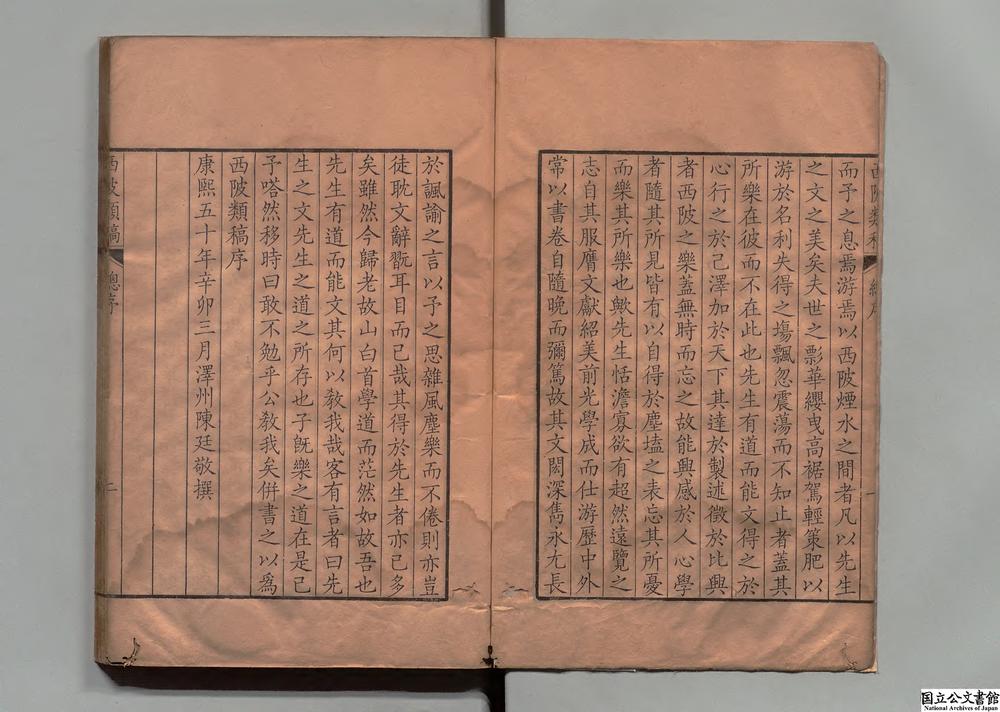 而予之息焉游焉以西陂煙水之間者凡以先生
之文之美矣夫世之影華纓曳高裾駕輕策肥以
游於名利失得之塲飄忽震蕩而不知止者蓋其
所樂在彼而不在此也先生有道而能文得之於
心行之於己澤加於天下其達於製述徵於比興
者西陂之樂蓋無時而忘之故能興感於人心學
者隨其所見皆有以自得於塵壒之表忘其所憂
而樂其所樂也歟先生恬澹寡欲有超然遠覽之
志自其服膺文獻紹美前光學成而仕游歷中外
常以書卷自隨晚而彌篤故其文閎深雋永尤長
於諷諭之言以予之思雜風塵樂而不倦則亦豈
徒耽文辭翫耳目而已哉其得於先生者亦已多
矣雖然今歸老故山白首學道而茫然如故吾也
先生有道而能文其何以敎我哉客有言者曰先
生之文先生之道之所存也子旣樂之道在是已
予嗒然移時曰敢不勉乎公敎我矣併書之以爲
西陂類稿序
康熙五十年辛卯三月澤州陳廷敬撰
西陂類稿 總序 二
国立公文書館
National Archives of Japan